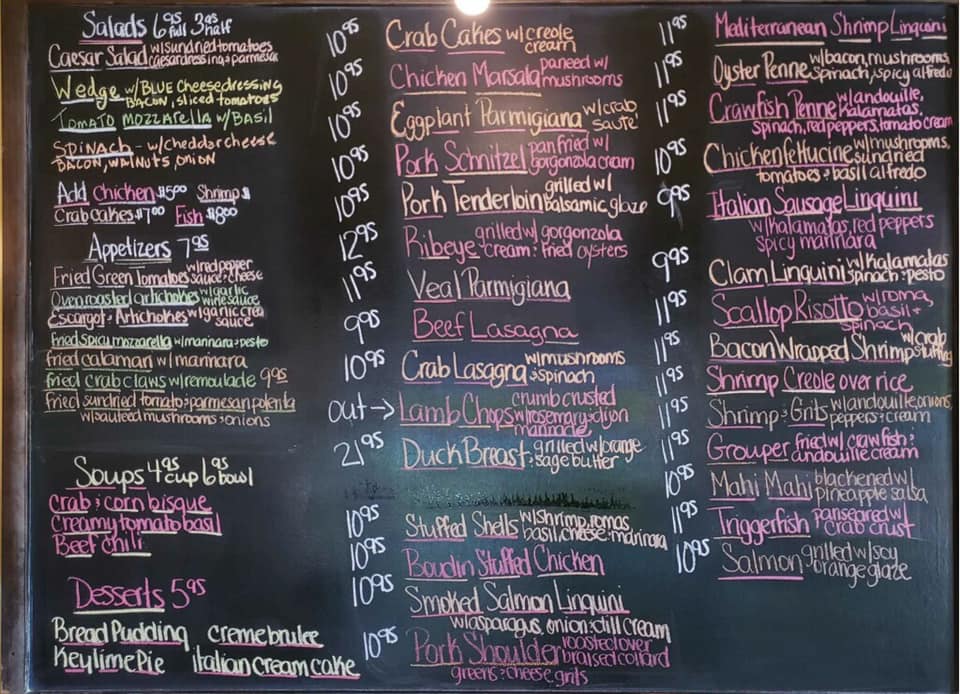 Salads 6.95 full 3.95 half
Caesar Salad w/sundried tomatoes
caesar dressing & parmesan
Wedge w/ BLUE Cheese dressing
BACON, sliced tomatoes
TOMATO MOZZARELLA w/ BASIL
SPINACH - w/ cheddar cheese
BACON, WALNUTS, ONION
Add Chicken $5.00 Shrimp $
Crab Cakes $7.00 Fish $8.00
Appetizers 7.95
Fried Green Tomatoes w/red pepper
sauce & cheese
Oven roasted artichokes w/garlic
wine sauce
Escargot & Artichokes w/garlic cream
sauce
Fried spicy mozzarella w/marinara & pesto
fried calamari w/ marinara
fried crab claws w/ remoulade 9.95
fried sundried tomato & parmesan polenta
w/sauteed mushrooms & onions
Soups 4.95 cup 6.95 bowl
Crab & corn bisque
Creamy tomato basil
Beef chili
Desserts 5.95
Bread Pudding creme brulee
Key lime Pie italian cream cake
10.95 Crab Cakes w/ creole
cream
10.95 Chicken Marsala paneed w/
mushrooms
10.95 Eggplant Parmigiana w/crab
saute
10.95 Pork Schnitzel pan fried w/
gorgonzola cream
10.95 Pork Tenderloin grilled w/
balsamic glaze
12.95 Ribeye grilled w/ gorgonzola
cream & fried oysters
11.95 Veal Parmigiana
9.95 Beef Lasagna
10.95 Crab Lasagna w/mushrooms
& spinach
out → Lamb Chops crumb crusted
w/rosemary & dijon
marinade
21.95 Duck Breast & grilled w/orange
sage butter
10.95 Stuffed Shells w/shrimp, romas,
basil, cheese & marinara
10.95 Boudin Stuffed Chicken
10.95 Smoked Salmon Linguini
w/asparagus, onion & dill cream
10.95 Pork Shoulder roasted over
braised collard
greens & cheese grits
11.95 Mediterranean Shrimp Linguini
11.95 Oyster Penne w/bacon, mushrooms,
spinach, spicy alfredo
11.95 Crawfish Penne w/andouille,
Kalamatas,
spinach, red peppers, tomato cream
10.95 Chicken fettucine w/mushrooms,
sundried
tomatoes & basil alfredo
9.95 Italian Sausage Linguini
w/kalamatas, red peppers
spicy marinara
9.95 Clam Linguini w/ Kalamatas
spinach & pesto
11.95 Scallop Risotto w/roma,
basil +
spinach
11.95 Bacon Wrapped Shrimp w/crab
stuffing
11.95 Shrimp Creole over rice
11.95 Shrimp & Grits w/andouille, onions,
peppers & cream
11.95 Grouper fried w/ crawfish &
andouille cream
10.95 Mahi Mahi blackened w/
pineapple salsa
11.95 Triggerfish panseared w/
crab crust
10.95 Salmon grilled w/soy
orange glaze